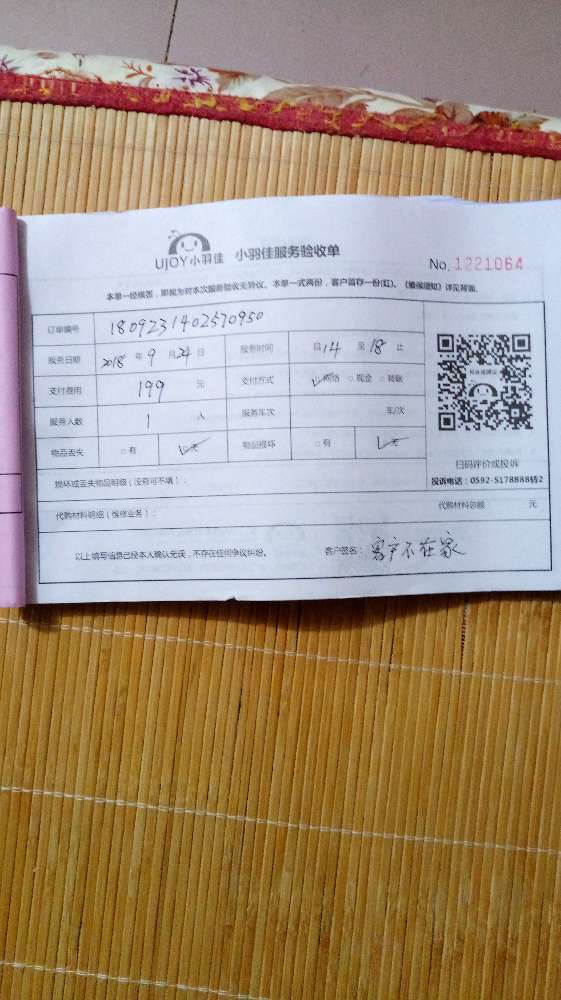 UJOY小羽佳 小羽佳服务验收单
No. 1221064
本单一经签名，即视为对本次服务验收无异议。本单一式两份，客户留存一份(红)。《郑重须知》详见背面。
订单编号 1809231402570950
服务日期 2018 年 9 月 24 日 服务时间 自 14 至 18 止
支付费用 199 元 支付方式 ✓网络 □现金 □转账
服务人数 1 人 服务车次 车/次
物品丢失 □有 ✓无 物品损坏 □有 ✓无
扫码评价或投诉
投诉电话：0592-5178888转2
损坏或丢失物品明细（没有可不填）：
代购材料明细（维修业务）： 代购材料总额 元
以上填写信息已经本人确认无误，不存在任何争议纠纷。 客户签名：客户不在家